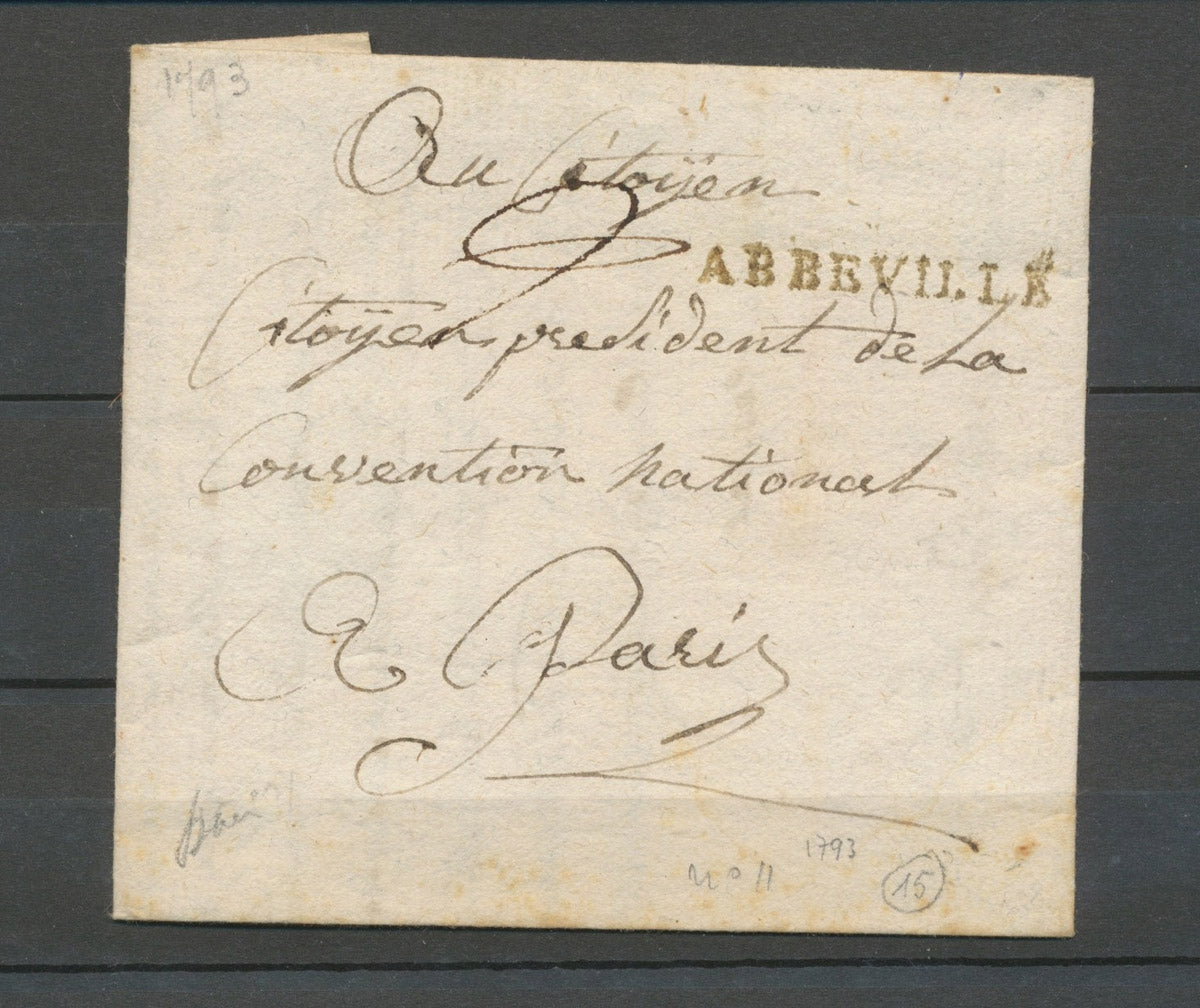 1793
Au Citoÿen
ABBEVILLE
Citoÿen president de La
Convention national
A Paris
1793
n° 11
15